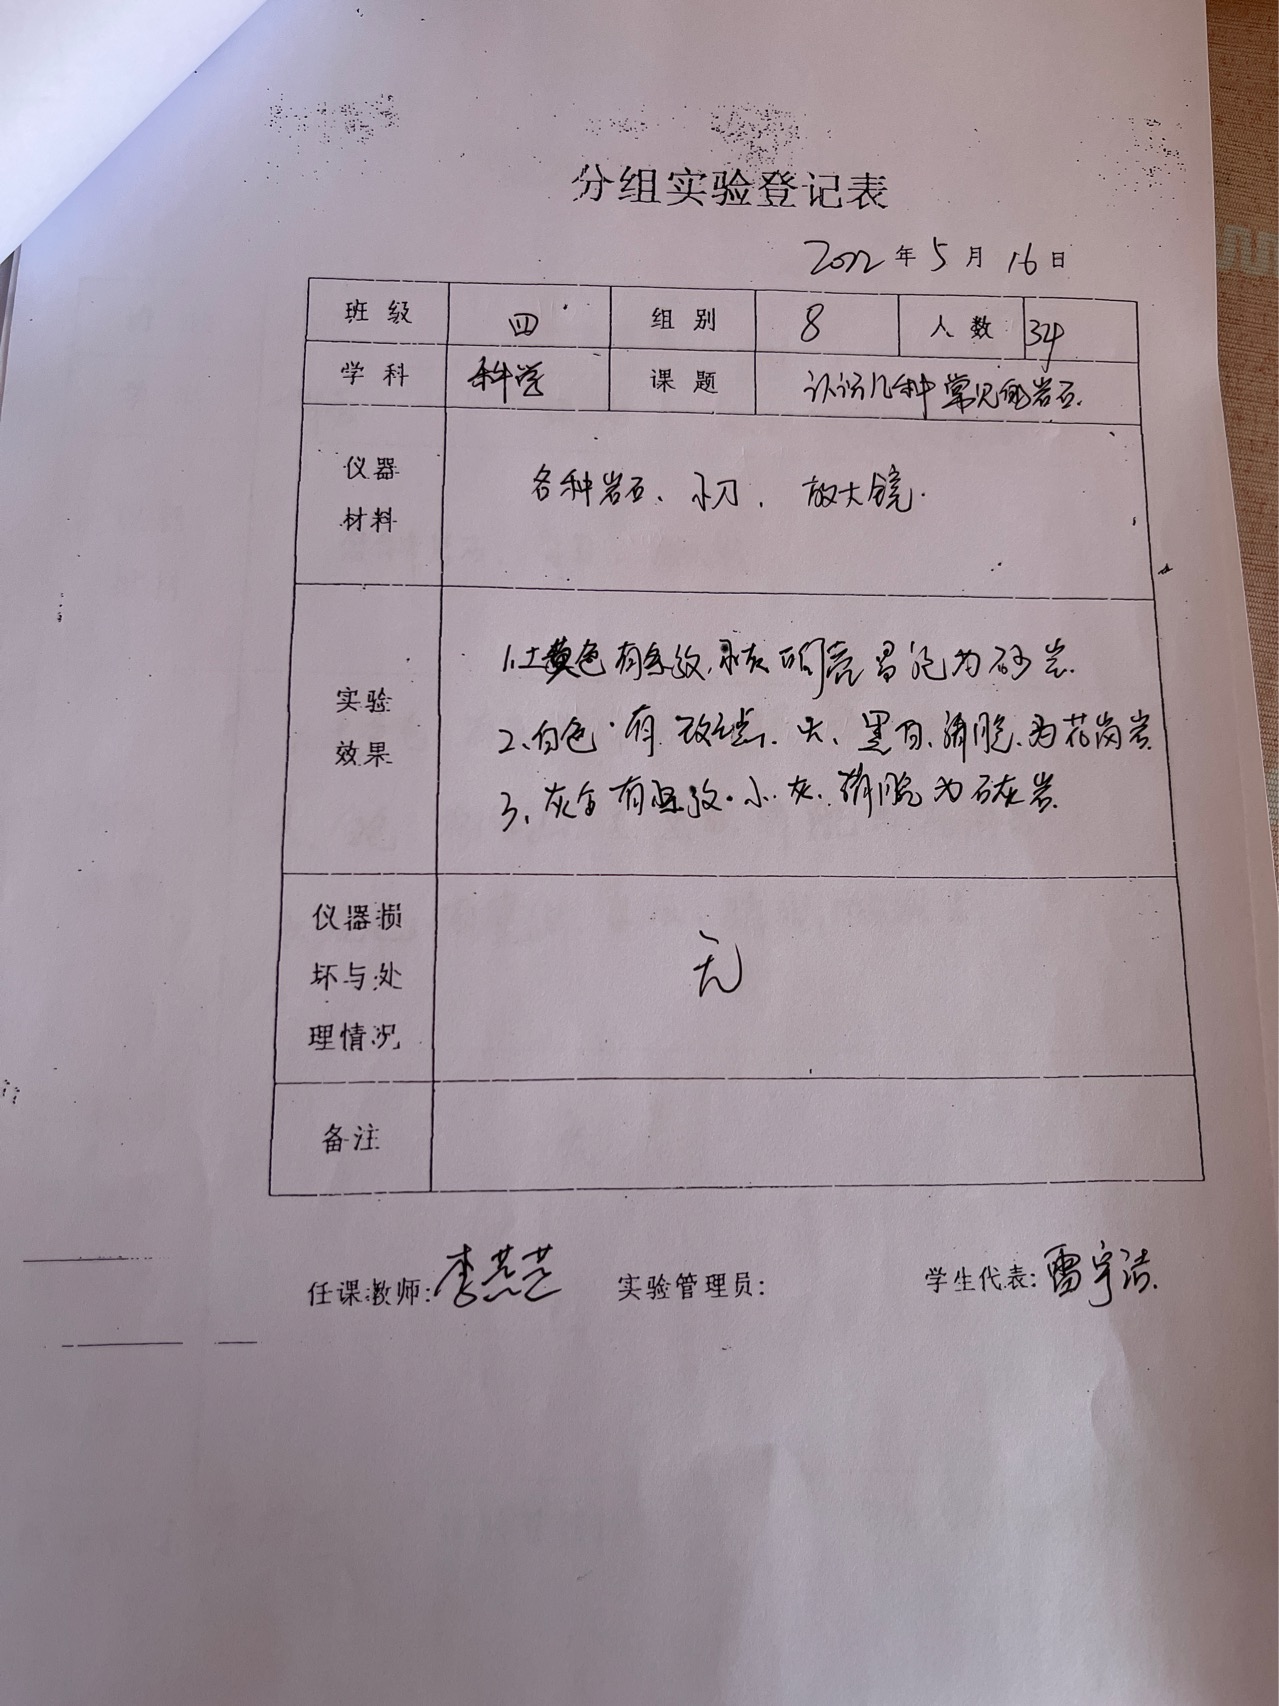 分组实验登记表
2022年5月16日
班级 四 组别 8 人数 34
学科 科学 课题 认识几种常见的岩石.
仪器
材料
各种岩石、小刀、放大镜.
实验
效果
1.土黄色有条纹, 为砂岩.
2、白色·有 黑白、 为花岗岩
3、灰 有 小灰、 为石灰岩
仪器损
坏与处
理情况
无
备注
任课教师: 李芸芸 实验管理员: 学生代表: 雷宇洁.